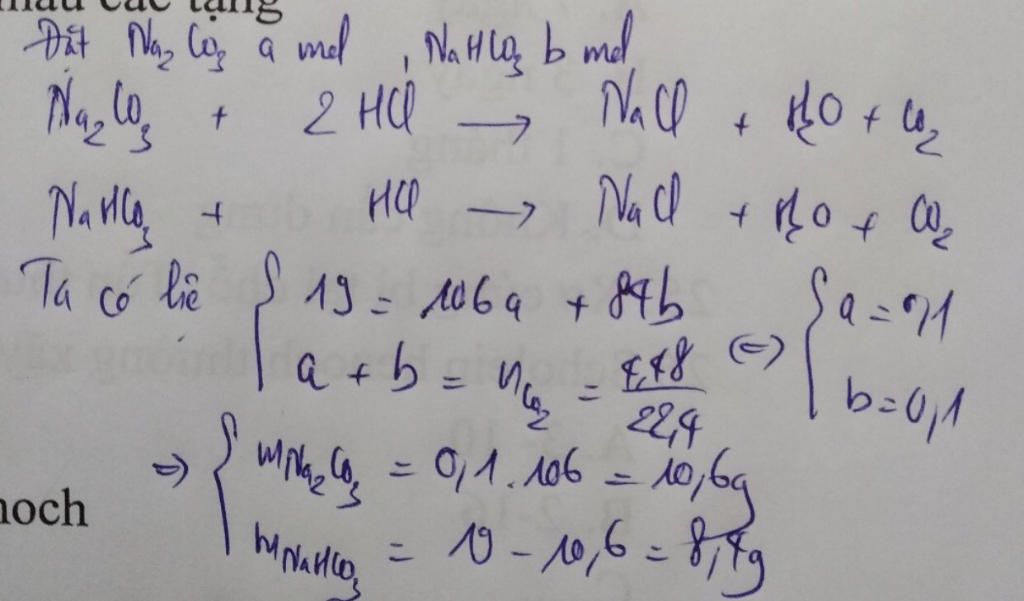 máu các tạng
Đặt Na₂CO₃ a mol , NaHCO₃ b mol
Na₂CO₃ + 2 HCl → NaCl + H₂O + CO₂
NaHCO₃ + HCl → NaCl + H₂O + CO₂
Ta có hệ { 19 = 106a + 84b
a + b = nCO₂ = 4,48/22,4 <=> { a = 0,1
b = 0,1
=> { mNa₂CO₃ = 0,1 . 106 = 10,6g
mNaHCO₃ = 19 - 10,6 = 8,4g
hoch